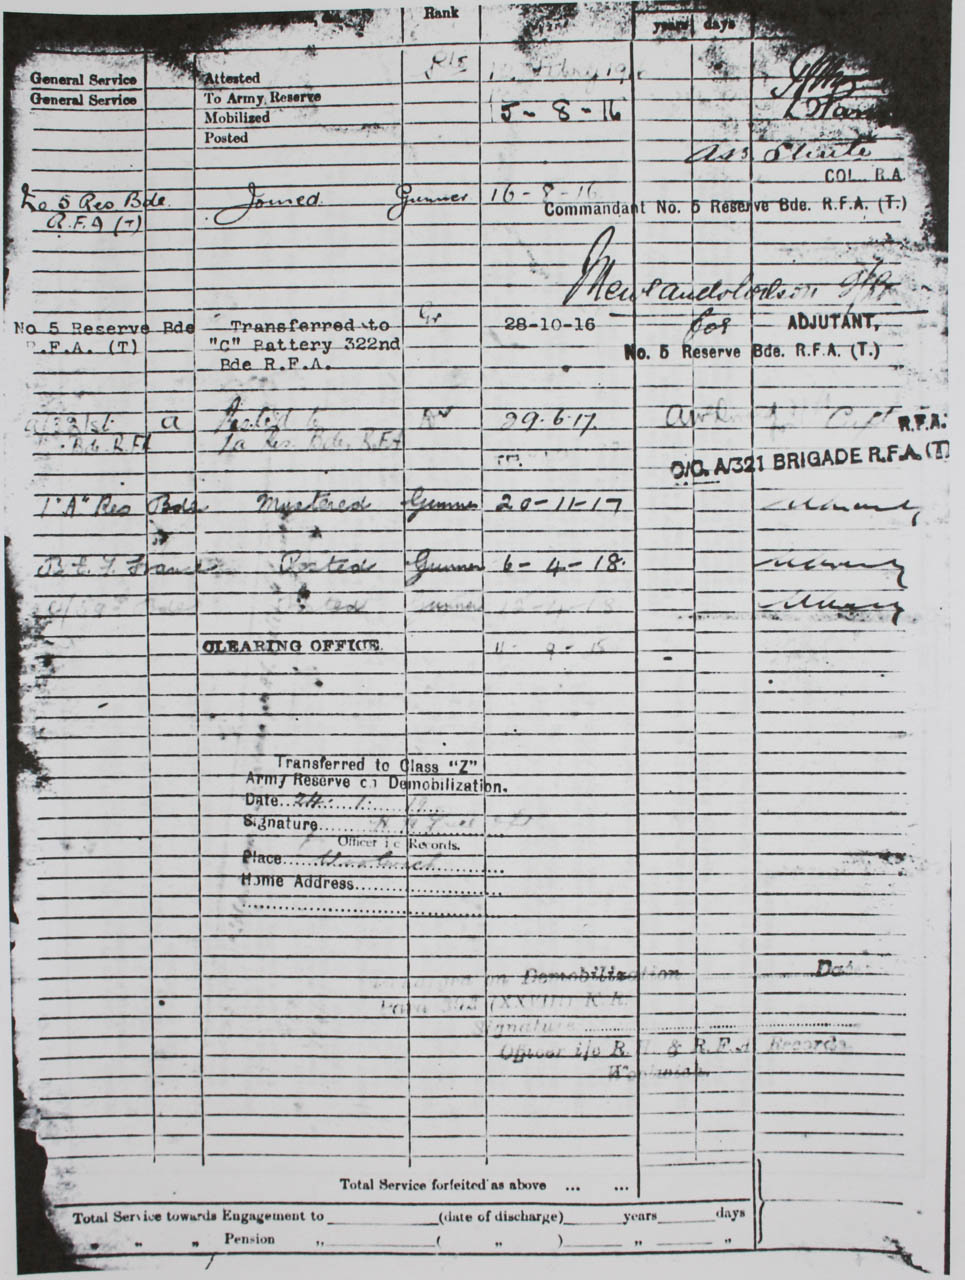 Rank
years days
General Service Attested Pte
General Service To Army Reserve
Mobilized 5-8-16
Posted
COL. R.A.
No 5 Res Bde. Joined Gunner 16-8-16
R.F.A (T)
Commandant No. 5 Reserve Bde. R.F.A. (T.)
No 5 Reserve Bde Transferred to Gr 28-10-16 for ADJUTANT,
R.F.A. (T) "C" Battery 322nd No. 5 Reserve Bde. R.F.A. (T.)
Bde R.F.A.
A/321st A Posted to 29.6.17 Capt R.F.A.
Bde. R.F.A 1a Res. Bde. R.F.A
O/C. A/321 BRIGADE R.F.A. (T)
1 "A" Res Bde Mustered Gunner 20-11-17
B.E.F. France Posted Gunner 6-4-18.
Bde Posted Gunner
CLEARING OFFICE.
Transferred to Class "Z"
Army Reserve on Demobilization.
Date 24. 1. 19
Signature
Officer i/c Records.
Place Woolwich
Home Address
on Demobilization Date
Para 392 (XXVIII) K.R.
Signature
Officer i/c R.H. & R.F.A. Records
Woolwich.
Total Service forfeited as above ... ...
Total Service towards Engagement to (date of discharge) years days
„ „ Pension „ ( „ ) „ „